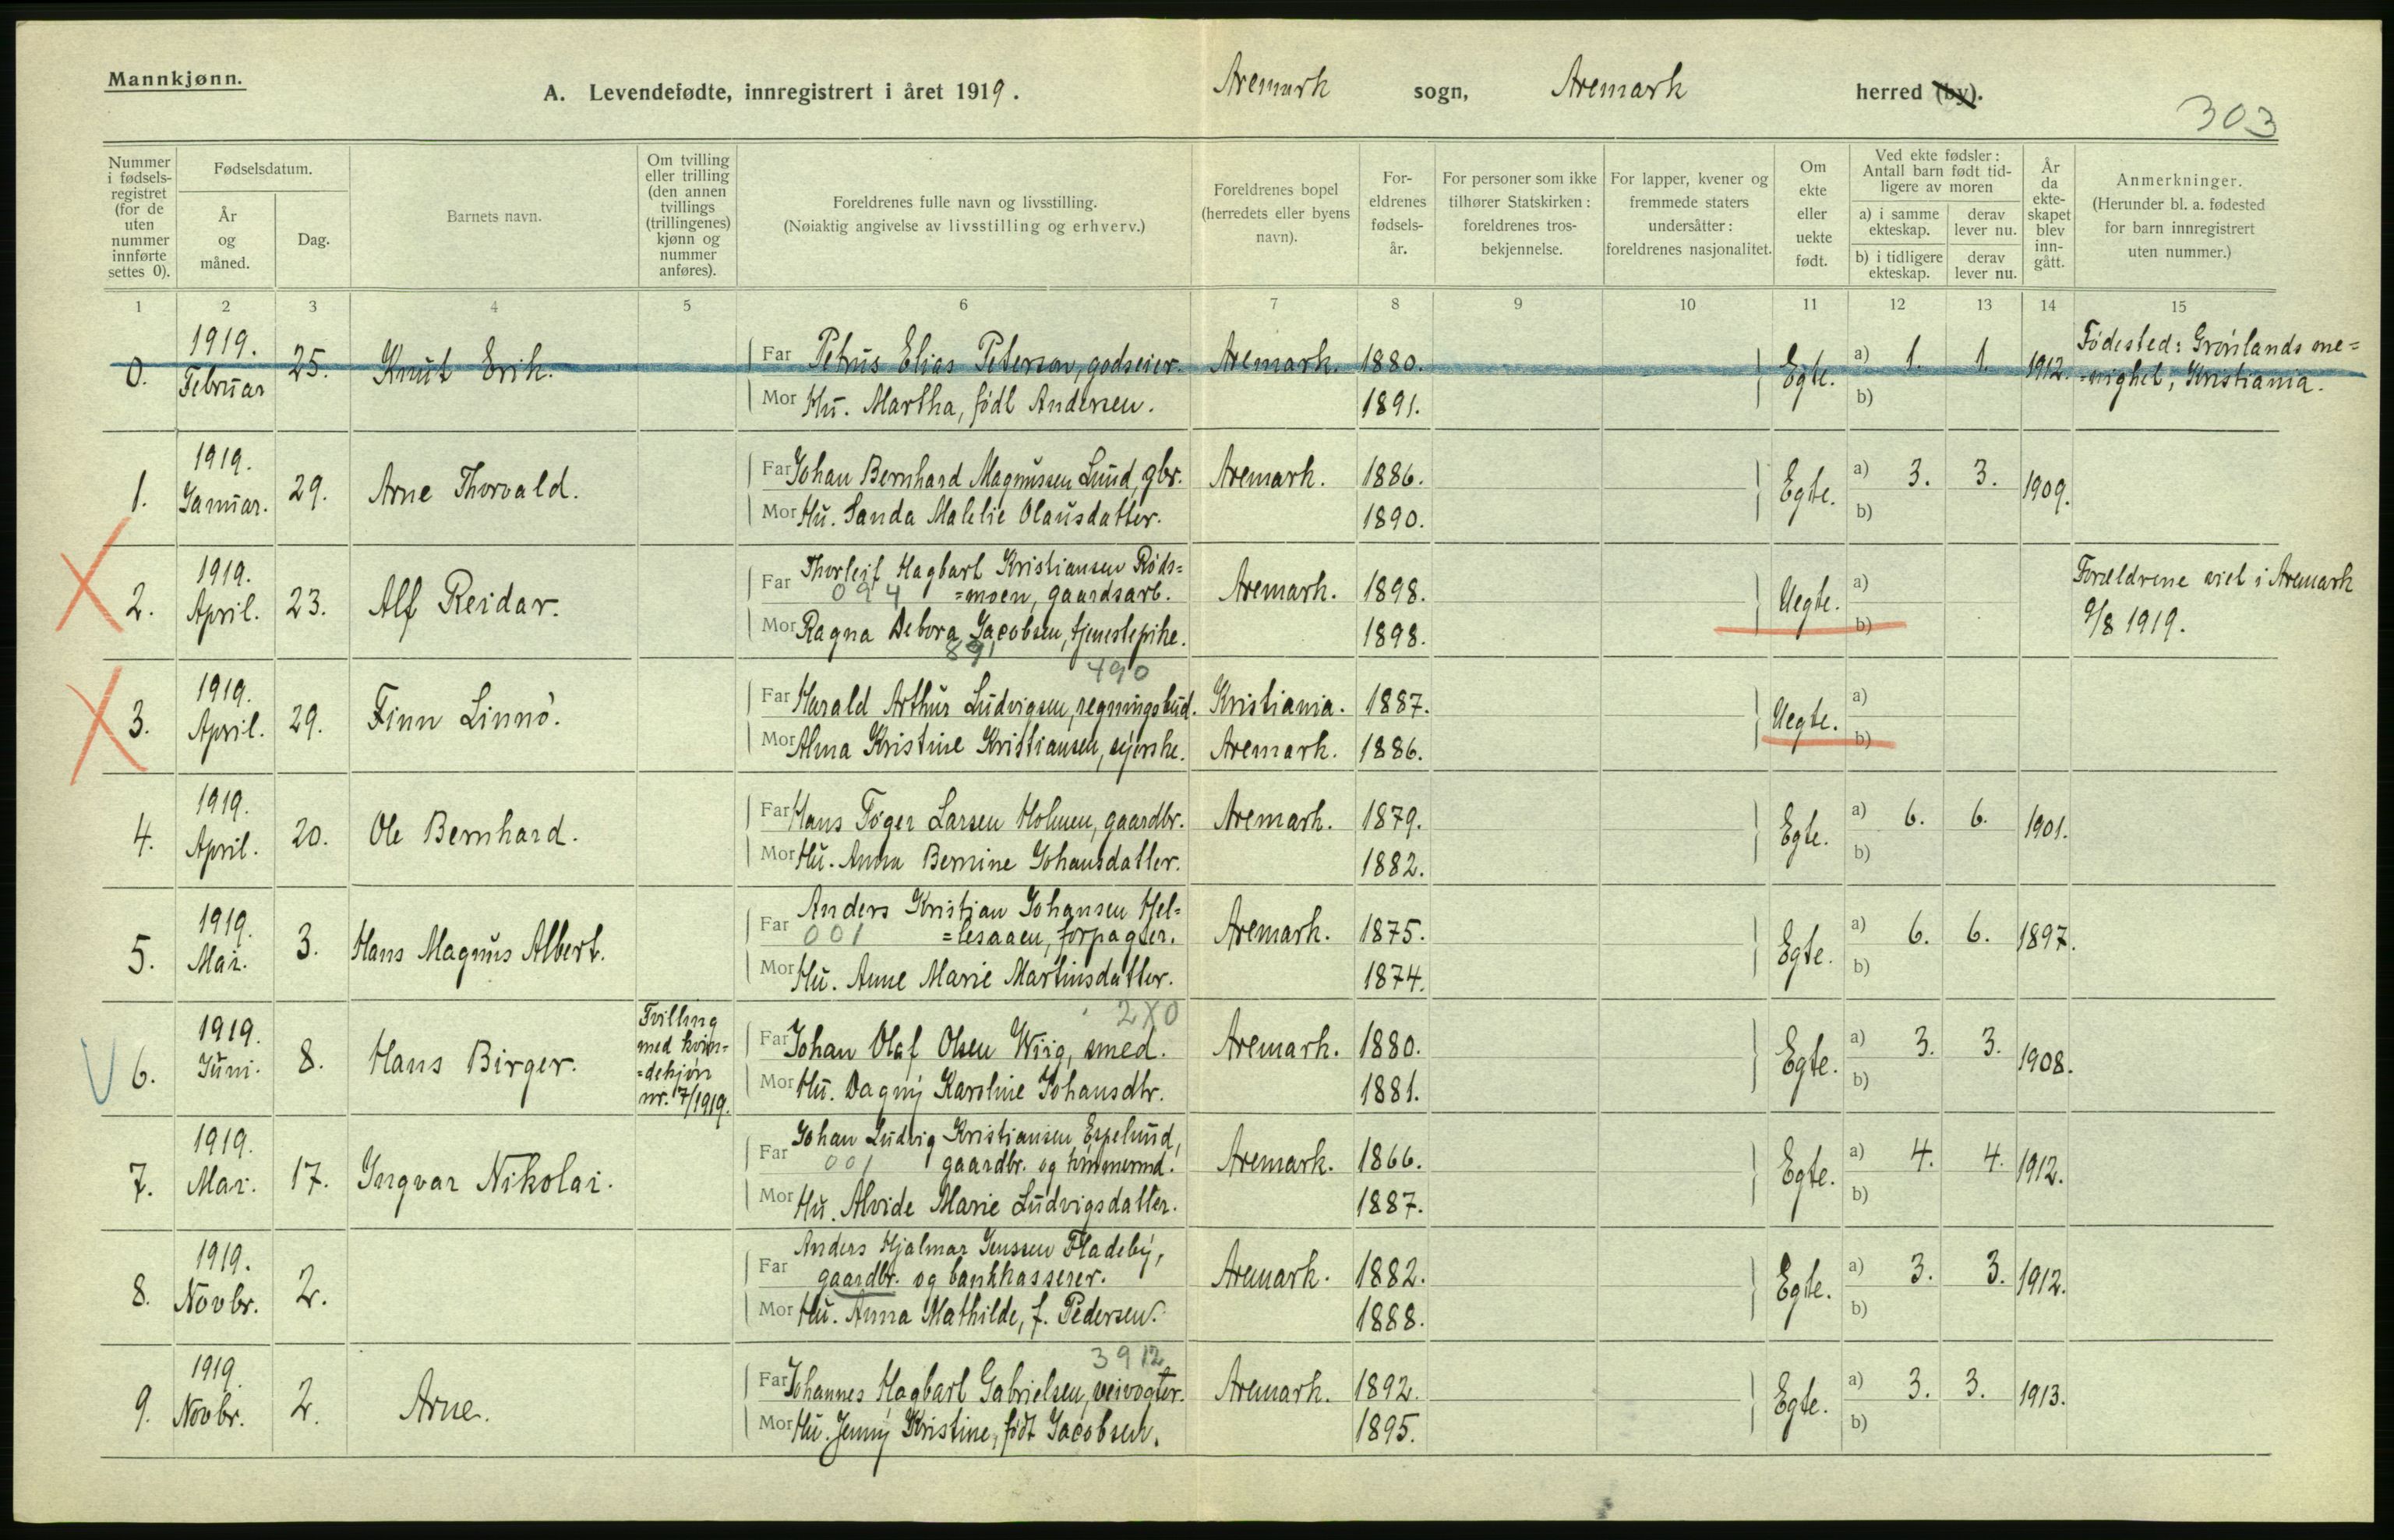 Mannkjønn.
A. Levendefødte, innregistrert i året 1919. Aremark sogn, Aremark herred (by).
303
Nummer i fødselsregistret (for de uten nummer innførte settes 0).
Fødselsdatum.
År og måned.
Dag.
Barnets navn.
Om tvilling eller trilling (den annen tvillings (trillingenes) kjønn og nummer anføres).
Foreldrenes fulle navn og livsstilling.
(Nøiaktig angivelse av livsstilling og erhverv.)
Foreldrenes bopel (herredets eller byens navn).
Foreldrenes fødselsår.
For personer som ikke tilhører Statskirken: foreldrenes trosbekjennelse.
For lapper, kvener og fremmede staters undersåtter: foreldrenes nasjonalitet.
Om ekte eller uekte født.
Ved ekte fødsler: Antall barn født tidligere av moren
a) i samme ekteskap. derav lever nu.
b) i tidligere ekteskap. derav lever nu.
År da ekteskapet blev inngått.
Anmerkninger.
(Herunder bl. a. fødested for barn innregistrert uten nummer.)
1 2 3 4 5 6 7 8 9 10 11 12 13 14 15
0. 1919. Februar 25. Knut Erik. Far Petrus Elias Peterson, godseier. Aremark. 1880. Egte. a) 1. 1. 1912. Fødested: Grønlands me=
=nighet, Kristiania.
Mor Hu. Martha, født Andersen. 1891. b)
1. 1919. Januar. 29. Arne Thorvald. Far Johan Bernhard Magnussen Lund, gbr. Aremark. 1886. Egte. a) 3. 3. 1909.
Mor Hu. Sanda Malelie Olausdatter. 1890. b)
2. 1919. April. 23. Alf Reidar. Far Thorleif Hagbart Kristiansen Røds=
094 =moen, gaardsarb. Aremark. 1898. Uegte. a) Forældrene viet i Aremark
9/8 1919.
Mor Ragna Debora Jacobsen, tjenestepike. 1898. b)
891
490
3. 1919. April. 29. Finn Linnò. Far Harald Arthur Ludvigsen, regningsbud. Kristiania. 1887. Uegte. a)
Mor Alma Kristine Kristiansen, syerske. Aremark. 1886. b)
4. 1919. April. 20. Ole Bernhard. Far Hans Tøger Larsen Holmen, gaardbr. Aremark. 1879. Egte. a) 6. 6. 1901.
Mor Hu. Anna Bernine Johansdatter. 1882. b)
5. 1919. Mai. 3. Hans Magnus Albert. Far Anders Kristian Johansen Hel=
001 =lesaaen, forpagter. Aremark. 1875. Egte. a) 6. 6. 1897.
Mor Hu. Anne Marie Martinsdatter. 1874. b)
2X0
6. 1919. Juni. 8. Hans Birger. Tvilling
med kvin=
=dekjøn
nr. 17/1919. Far Johan Olaf Olsen Wiig, smed. Aremark. 1880. Egte. a) 3. 3. 1908.
Mor Hu. Dagny Karoline Johansdtr. 1881. b)
7. 1919. Mai. 17. Ingvar Nikolai. Far Johan Ludvig Kristiansen Espelund,
001 gaardbr. og tømmermd. Aremark. 1866. Egte. a) 4. 4. 1912.
Mor Hu. Alvide Marie Ludvigsdatter. 1887. b)
8. 1919. Novbr. 2. Far Anders Hjalmar Jenssen Fladeby,
gaardbr. og bankkasserer. Aremark. 1882. Egte. a) 3. 3. 1912.
Mor Hu. Anna Mathilde, f. Pedersen. 1888. b)
3912
9. 1919. Novbr. 2. Arne. Far Johannes Hagbart Gabrielsen, veivogter. Aremark. 1892. Egte. a) 3. 3. 1913.
Mor Hu. Jenny Kristine, født Jacobsen. 1895. b)